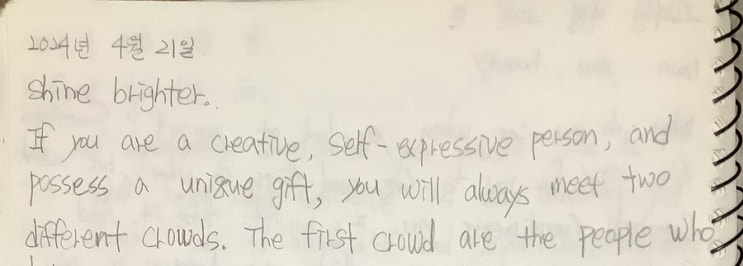 2024년 4월 21일
Shine brighter.
If you are a creative, self-expressive person, and
possess a unique gift, you will always meet two
different crowds. The first crowd are the people who